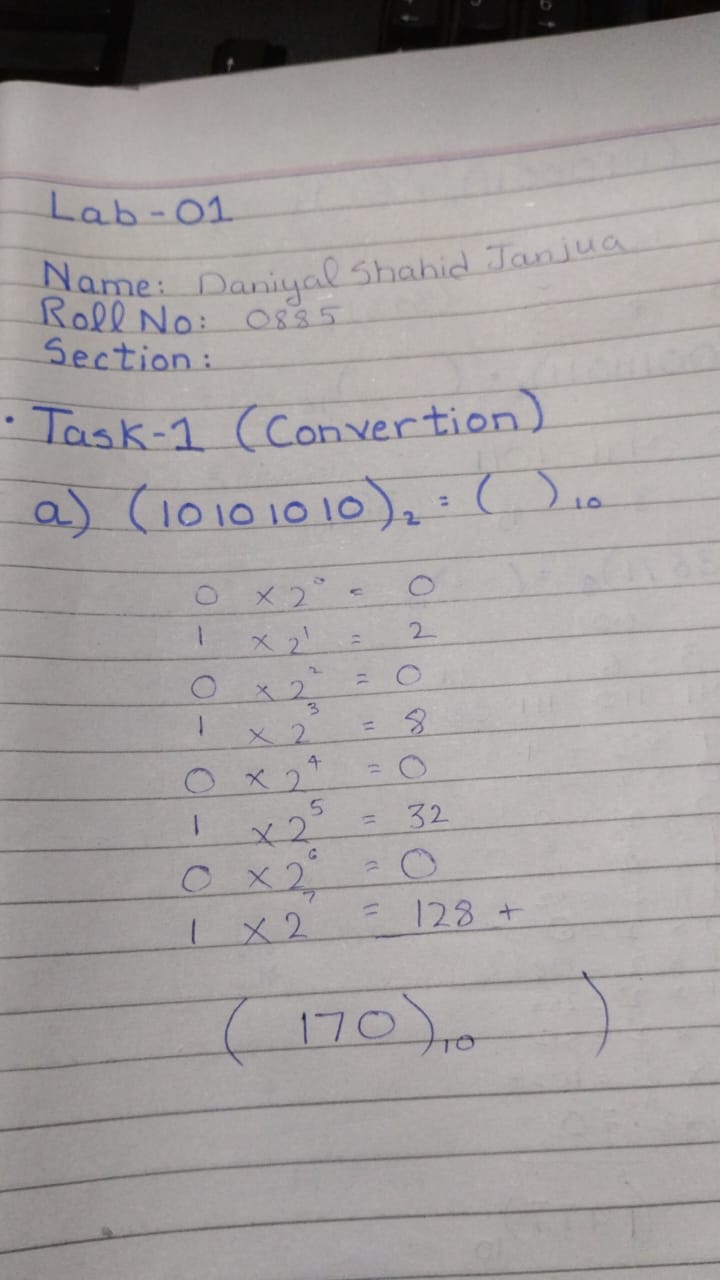 Lab-01
Name: Daniyal Shahid Janjua
Roll No: 0885
Section:
• Task-1 (Convertion)
a) (10101010)₂ = ( )₁₀
0 × 2⁰ = 0
1 × 2¹ = 2
0 × 2² = 0
1 × 2³ = 8
0 × 2⁴ = 0
1 × 2⁵ = 32
0 × 2⁶ = 0
1 × 2⁷ = 128 +
( 170)₁₀ )